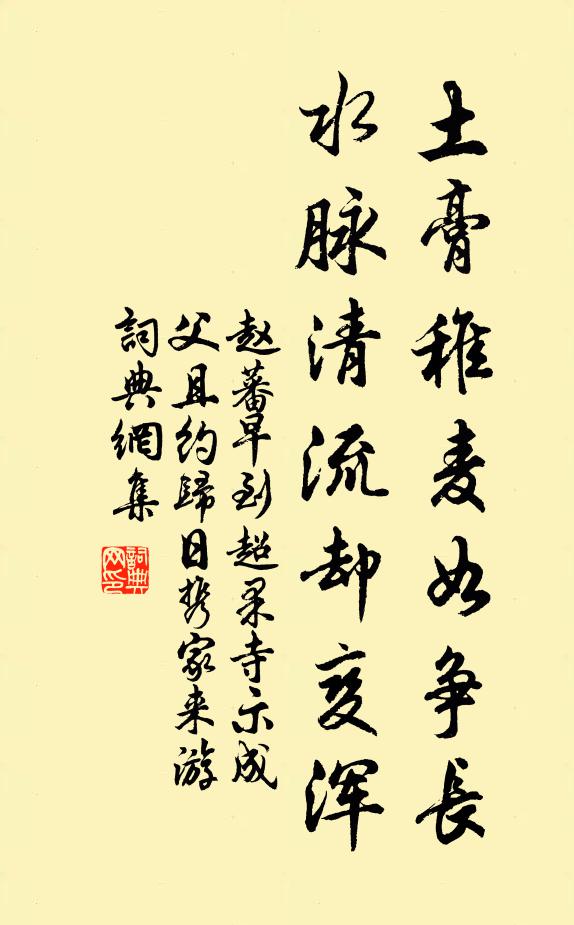 土膏稚麦如争長
水脉清流却变浑
赵蕃早到超果寺示成
父且约歸日携家来游
詞典網集
詞典网印